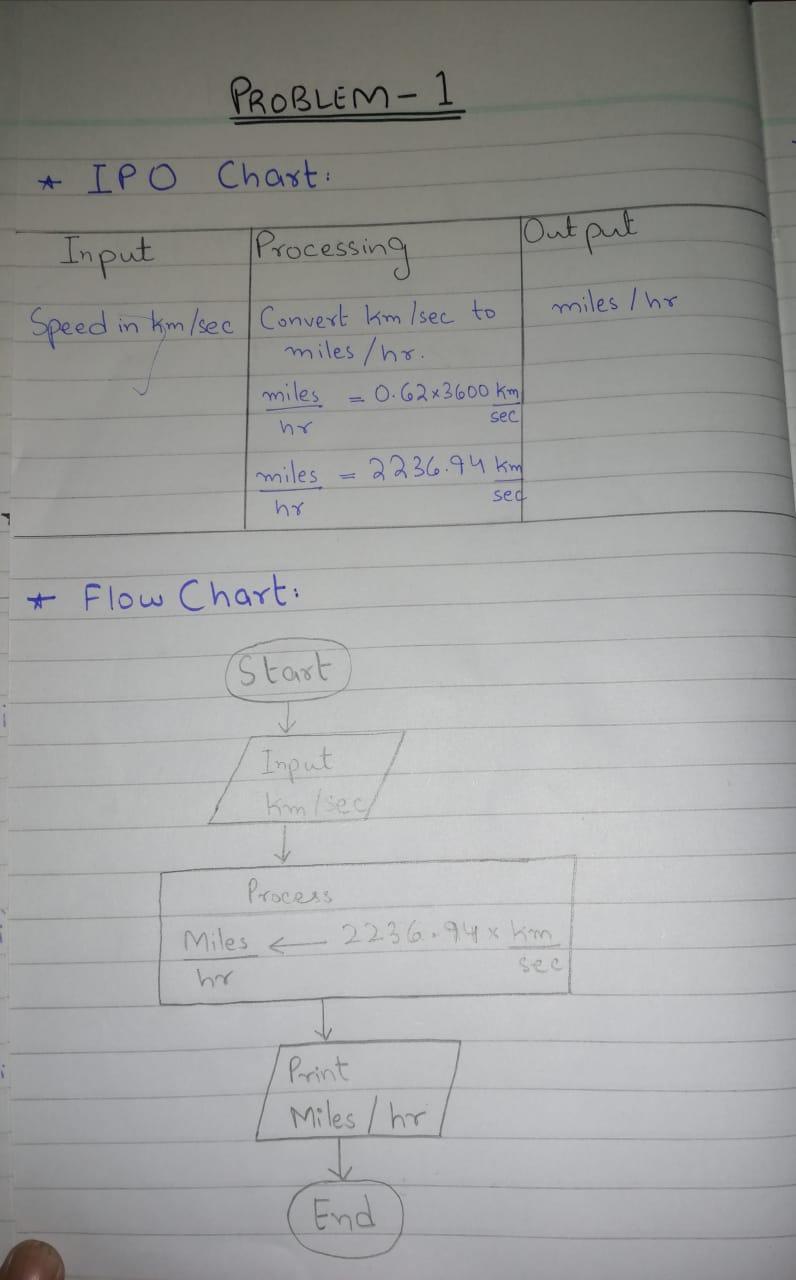 PROBLEM - 1
* IPO Chart:
Input Processing Output
Speed in km/sec Convert km/sec to miles/hr
miles/hr.
miles = 0.62x3600 km
hr sec
miles = 2236.94 km
hr sec
* Flow Chart:
Start
Input
km/sec
Process
Miles ← 2236.94 x km
hr sec
Print
Miles/hr
End